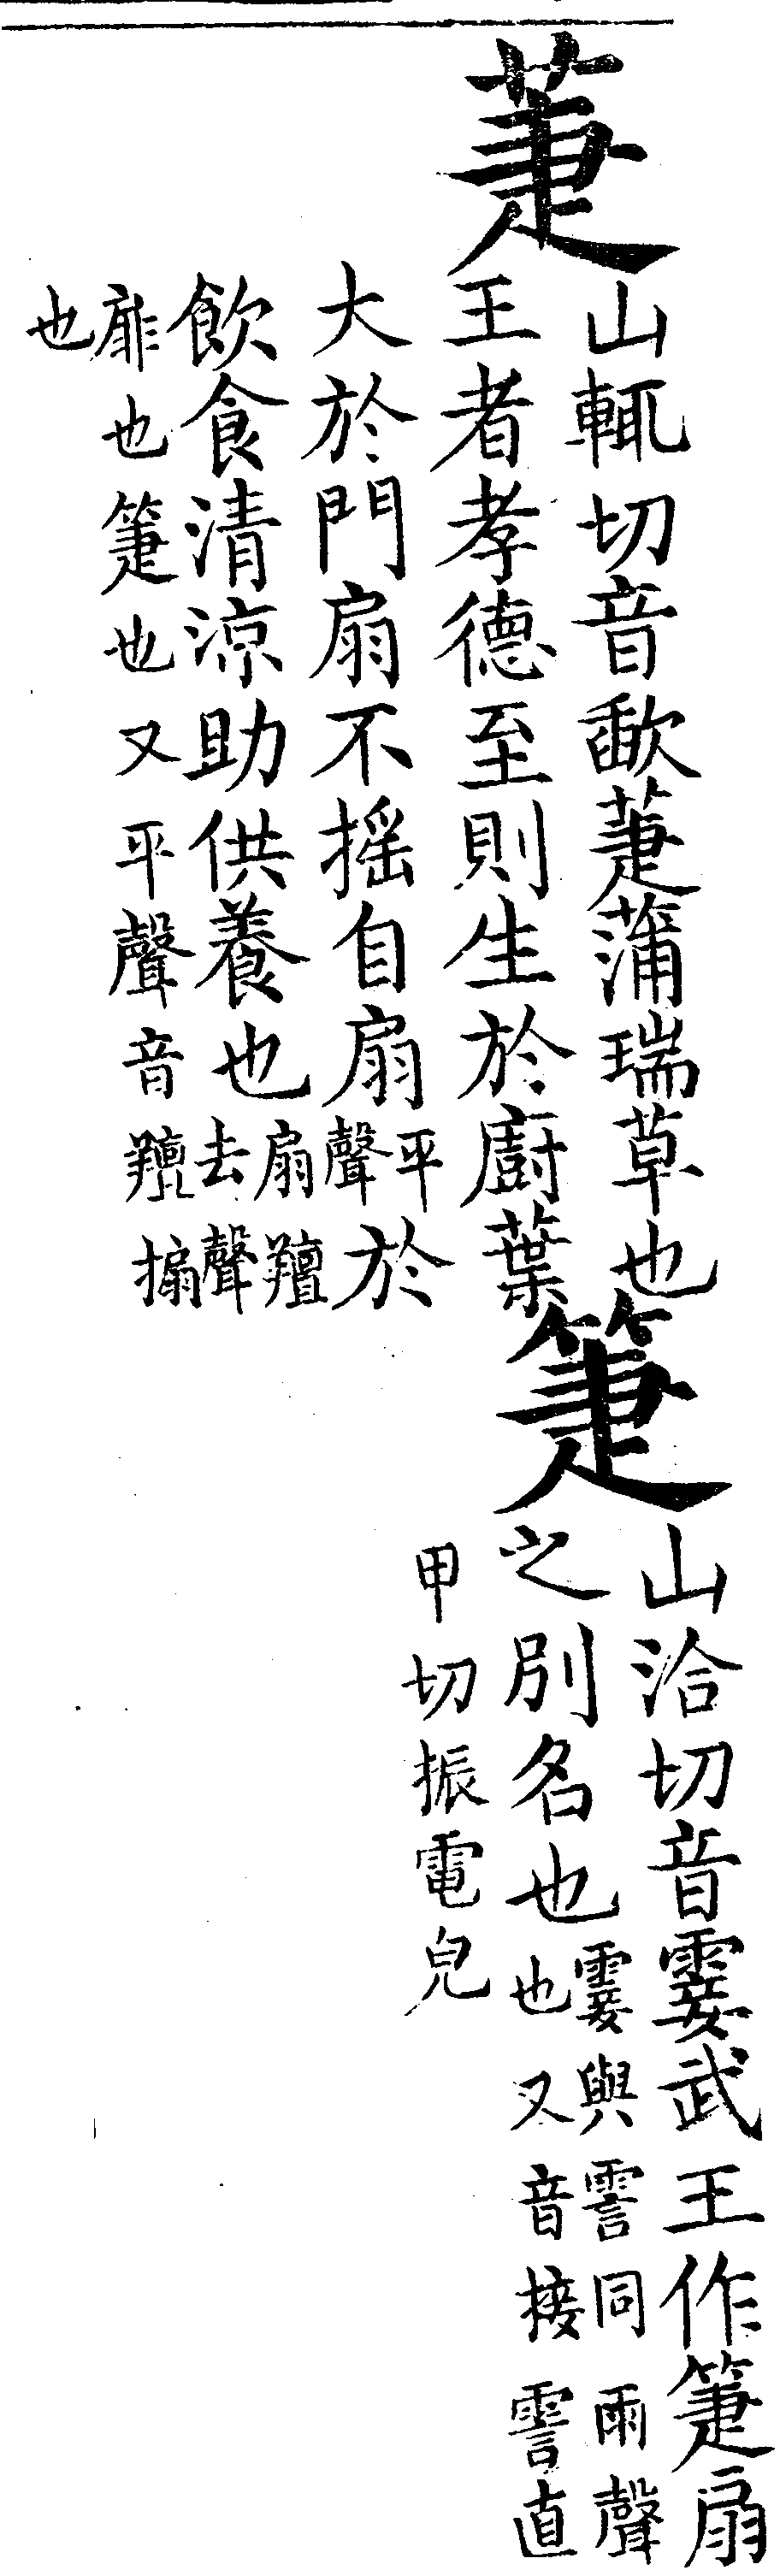 萐
山輒切音歃萐蒲瑞草也
王者孝德至則生於廚葉
大於門扇不搖自扇平聲於
飲食清涼助供養也扇羶去聲
扉也箑也又平聲音羶搧
也
箑
山洽切音霎武王作箑扇
之別名也霎與霅同雨聲
也又音接霅直
甲切振電皃